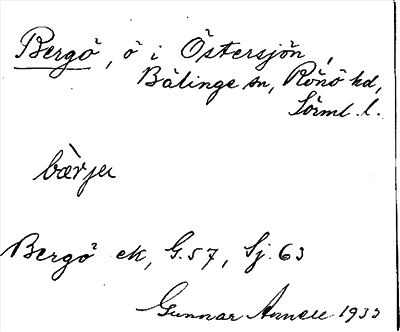 Bergö, ö i Östersjön,
Bälinge sn, Rönö hd,
Sörml. l.
bœ̀rjɐ
Bergö ek, G.57, Sj.63
Gunnar Annell 1933